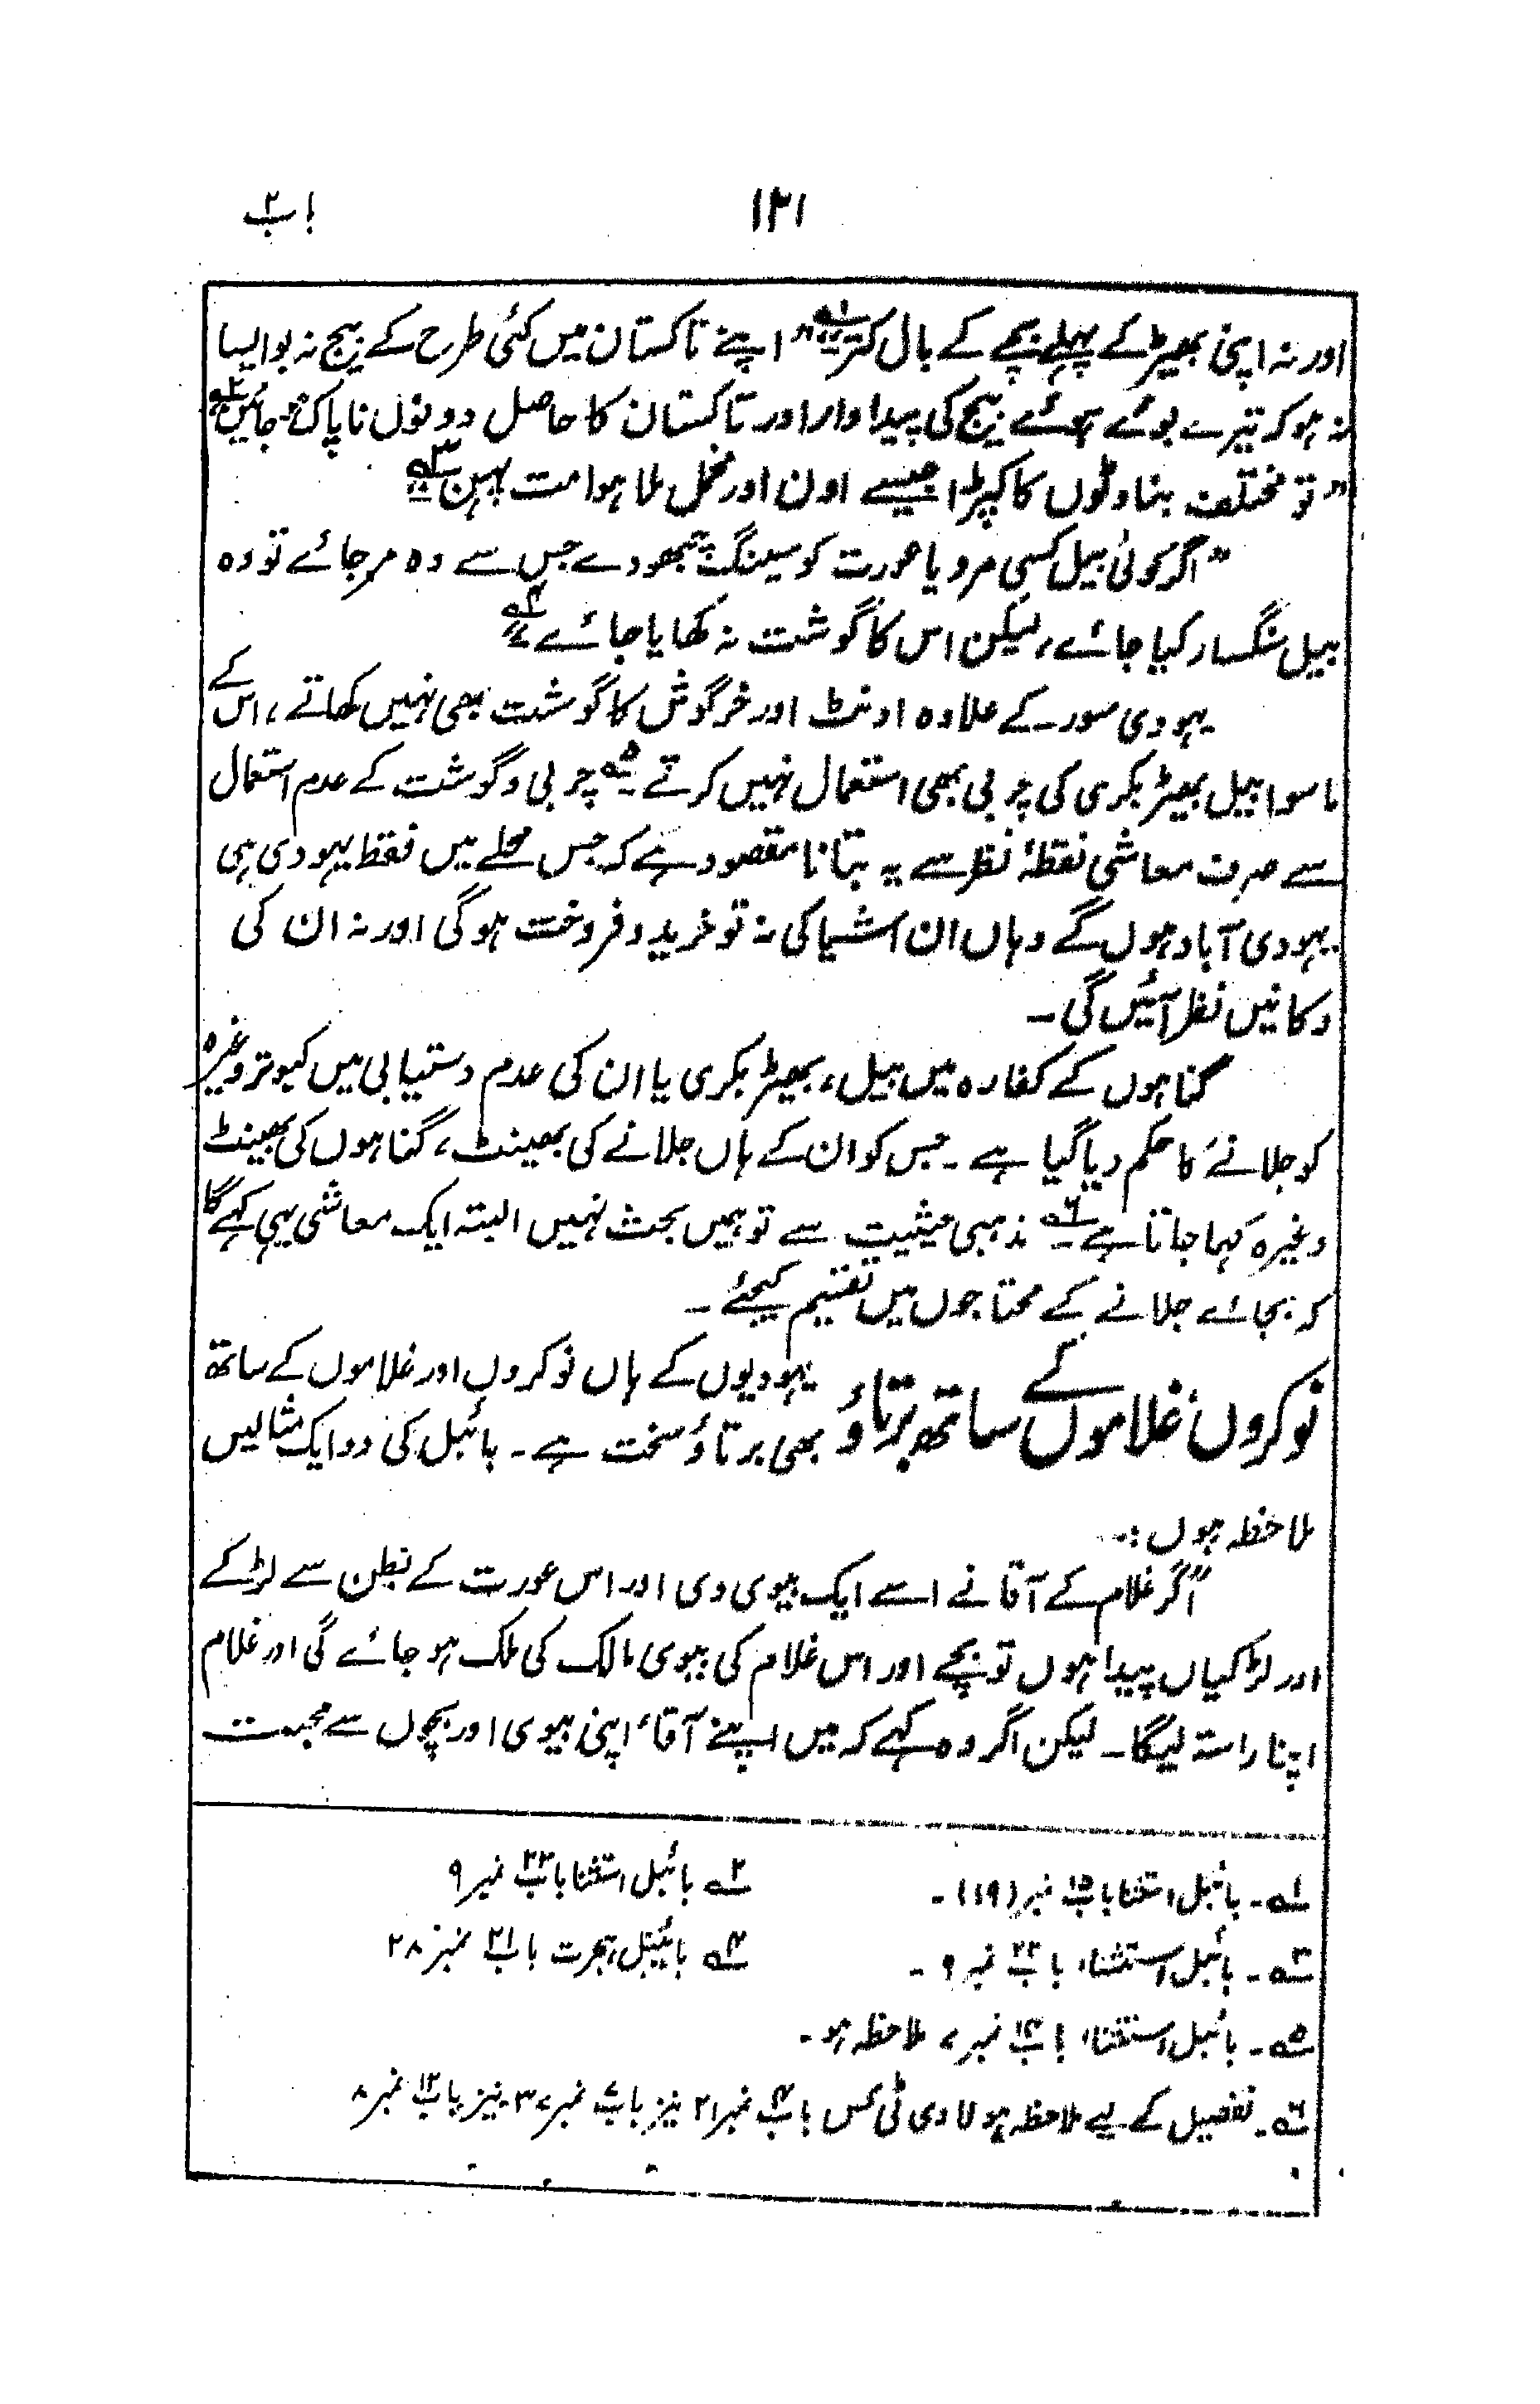 ۱۲۱
باب ۲
اور نہ اپنی بھیڑ کے پہلے بچے کے بال کتر" ۱؎ "اپنے تاکستان میں کئی طرح کے بیج نہ بو ایسا
نہ ہو کہ تیرے بوئے ہوئے بیج کی پیداوار اور تاکستان کا حاصل دونوں ناپاک ہو جائیں" ۲؎
"تو مختلف بناوٹوں کا کپڑا جیسے اون اور مخمل ملا ہوا مت پہن" ۳؎
"اگر کوئی بیل کسی مرد یا عورت کو سینگ چبھودے جس سے وہ مر جائے تو وہ
بیل سنگسار کیا جائے، لیکن اس کا گوشت نہ کھایا جائے" ۴؎
یہودی سور کے علاوہ اونٹ اور خرگوش کا گوشت بھی نہیں کھاتے، اس کے
ما سوا بیل بھیڑ بکری کی چربی بھی استعمال نہیں کرتے ۵؎ چربی و گوشت کے عدم استعمال
سے صرف معاشی نقطۂ نظر سے یہ بتانا مقصود ہے کہ جس محلے میں فقط یہودی ہی
یہودی آباد ہوں گے وہاں ان اشیا کی نہ تو خرید و فروخت ہوگی اور نہ ان کی
دکانیں نظر آئیں گی۔
گناہوں کے کفارہ میں بیل، بھیڑ بکری یا ان کی عدم دستیابی میں کبوتر وغیرہ
کو جلانے کا حکم دیا گیا ہے۔ جس کو ان کے ہاں جلانے کی بھینٹ، گناہوں کی بھینٹ
وغیرہ کہا جاتا ہے ۶؎ مذہبی حیثیت سے تو ہمیں بحث نہیں البتہ ایک معاشی یہی کہے گا
کہ بجائے جلانے کے محتاجوں میں تقسیم کیجئے۔
نوکروں، غلاموں کے ساتھ برتاؤ
یہودیوں کے ہاں نوکروں اور غلاموں کے ساتھ
بھی برتاؤ سخت ہے۔ بائبل کی دو ایک مثالیں
ملاحظہ ہوں:۔
"اگر غلام کے آقا نے اسے ایک بیوی دی اور اس عورت کے بطن سے لڑکے
اور لڑکیاں پیدا ہوں تو بچے اور اس غلام کی بیوی مالک کی ملک ہو جائے گی اور غلام
اپنا راستہ لیگا۔ لیکن اگر وہ کہے کہ میں اپنے آقا، اپنی بیوی اور بچوں سے محبت
۱؎۔ بائبل، استثنا باب ۱۵ نمبر (۱۹)۔
۲؎ بائبل، استثنا باب ۲۲ نمبر ۹
۳؎۔ بائبل استثناء باب ۲۲ نمبر ۹۔
۴؎ بائیبل، ہجرت باب ۲۱ نمبر ۲۸
۵؎۔ بائبل استثناء باب ۱۴ نمبر ۷ ملاحظہ ہو۔
۶؎۔ تفصیل کے لیے ملاحظہ ہو لاوی ٹی کس باب ۴ نمبر ۲۱ نیز باب ۷ نمبر ۳۷ نیز باب ۱۲ نمبر ۸